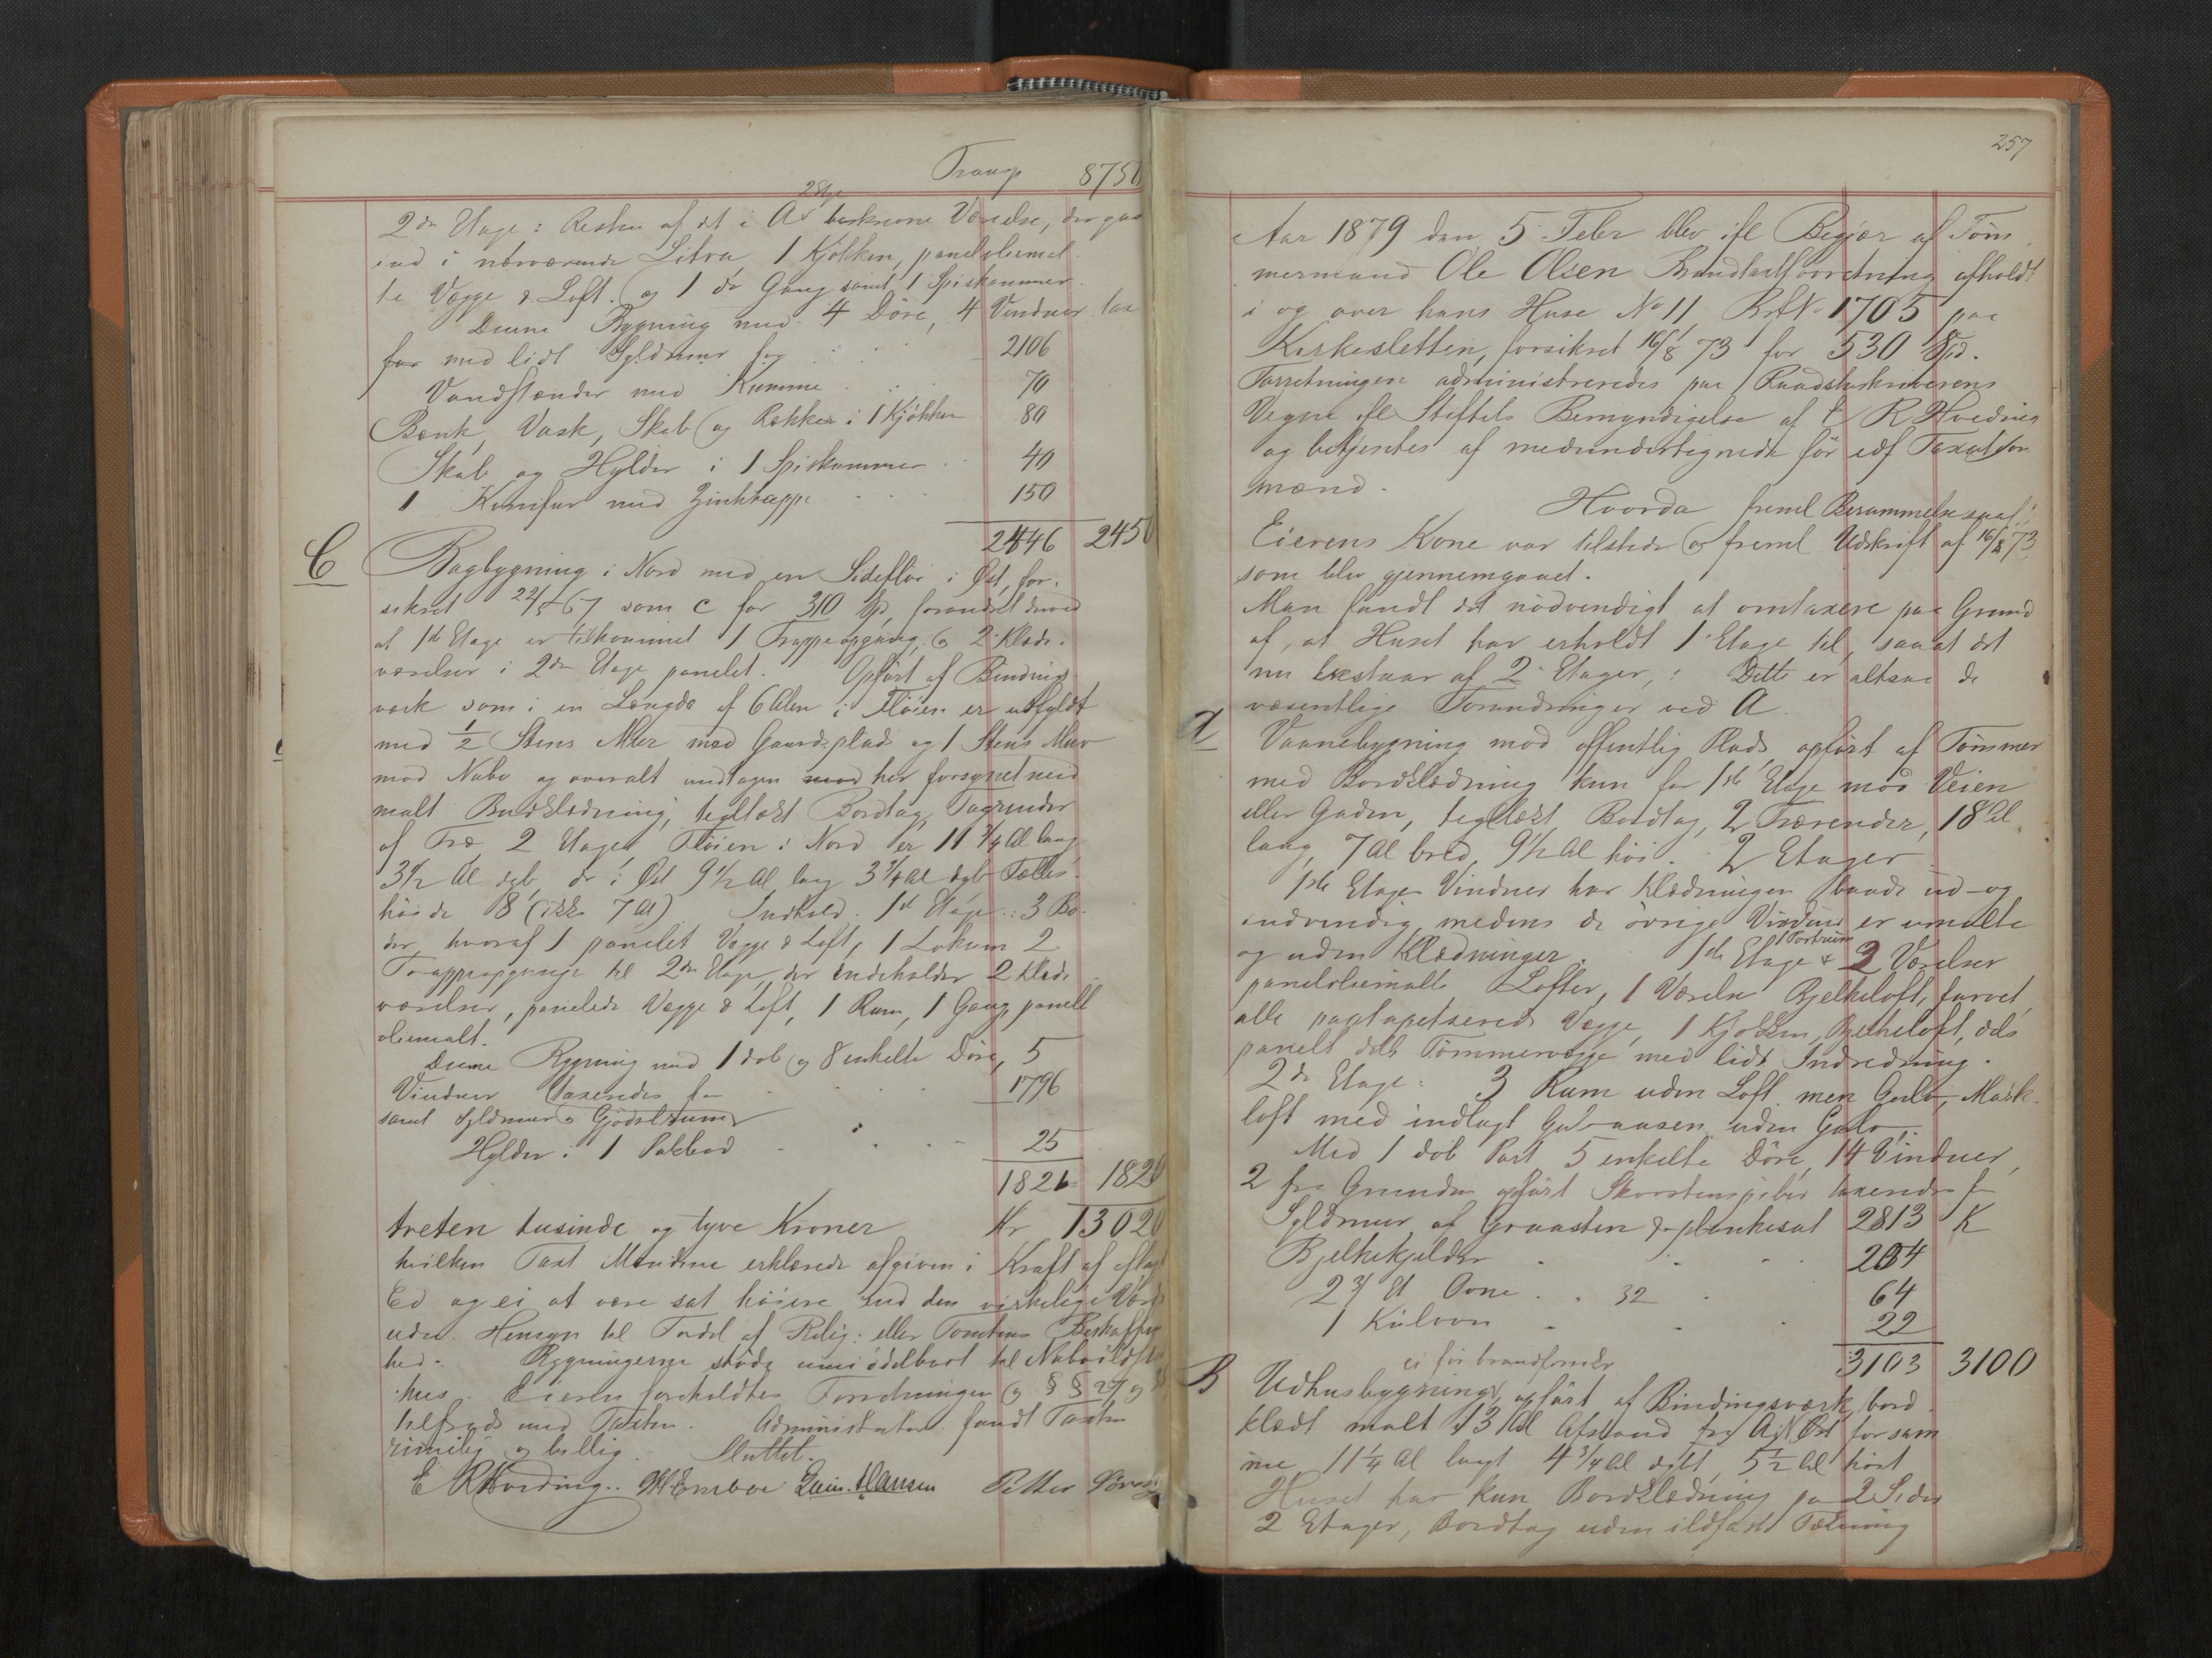 Transp 8750
2 Etge
2den Etage: Resten af det i A beskrevne Værelse, der gaar
ind i nærværende Litra, 1 Kjökken, paneloliemal-
te Vægge & Loft. og 1 do Gang samt 1 Spiskammer.
Denne Bygning med 4 Döre, 4 Vinduer tax
for med lidt Syldmur for 2106
Vandstænder med Kumme 70
Bænk, Vask, Skab og Rækker i 1 Kjökken 80
Skab og Hylder i 1 Spiskammer 40
1 Komfur med Zinkkappe 150
2446 2450
C Bagbygning i Nord med en Sideflöi i Öst, for-
sikret 22/5 67 som C for 310 Spd, forandret derved
at i 1ste Etage er tilkommet 1 Trappeopgang, og 2 Klæde-
værelser i 2den Etage panelet. Opfört af Bindings
værk som i en Længde af 6 Alen i Flöien er udfyldt
med 1/2 Stens Mur mod Gaardsplads og 1 Stens Mur
mod Nabo og overalt undtagen her forsynet med
malt Bordklædning, tegltækt Bordtag, Tagrender
af Træ 2 Etager, Flöien i Nord er 11 3/4 Al lang
3 1/2 Al dyb, do i Öst 9 1/2 Al lang 3 3/4 Al dyb Fælles
höide 8 (ikke 7 Al) Indhold: 1ste Etage: 3 Bo-
der, hvoraf 1 panelet Vægge & Loft, 1 Lokum 2
Trappeopgange til 2den Etage, der indeholder 2 Klæde
værelser, panelede Vægge & Loft, 1 Rum, 1 Gang panelt
oliemalt.
Denne Bygning med 1 dob og 8 enkelte Döre, 5
Vinduer taxeredes for 1796
samt Syldmur & Gjödselrum
Hylder i 1 Pakbod 25
1821 1820
tretten tusinde og tyve Kroner Kr 13020
hvilken Taxt Mændene erklærede afgiven i Kraft af aflagt
Ed og ei at være sat höiere end den virkelige Værdi
uden Hensyn til Fordel af Belig: eller Tomtens Beskaffen
hed. Bygningerne stöde umiddelbart til Nabo
hus. Eieren foreholdtes Forretningen og §§ 27 og
tilfreds med Taxten. Administrator fandt Taxten
rimelig og billig. Sluttet.
E R Hvoding. Hansen Petter
257
Aar 1879 den 5 Febr blev ifl Begjær af Töm
mermand Ole Olsen Brandtaxtforretning afholdt
i og over hans Huse No 11, Brf No 1705 paa
Kirkesletten, forsikret 16/8 73 for 530 Spd.
Forretningen administreredes paa Raadstuskriverens
Vegne ifl Stiftets Bemyndigelse af E R Hvoding
og betjentes af medundertegnede för edf Taxations
mænd.
Hvorda freml Berammelsesaal
Eierens Kone var tilstede og freml Udskrift af 16/8 73
som blev gjennemgaaet.
Man fandt det nödvendigt at omtaxere paa Grund
af, at Huset har erholdt 1 Etage til, saaat det
nu bestaar af 2 Etager, : Dette er altsaa de
væsentlige Forandringer ved A.
A Vaanebygning mod offentlig Plads, opfört af Tömmer
med Bordklædning kun for 1ste Etage mod Veien
eller Gaden, tegltækt Bordtag, 2 Trærender, 18 Al
lang, 7 Al bred, 9 1/2 Al höi. 2 Etager.
1ste Etages Vinduer har Klædninger baade ud- og
indvendig, medens de övrige Vinduer er umalte
og uden Klædninger. 1ste Etage 1 Portrum & 2 Værelser
paneloliemalte Lofter, 1 Værelse Bjelkeloft, farvet,
alle paptapetserede Vægge, 1 Kjökken, Bjelkeloft, dels
panelt dels Tömmervægge med lidt Indredning.
2den Etage: 3 Rum uden Loft men Gulv, Mörk-
loft med indlagt Gulvaasen uden Gulv.
Med 1 dob Port 5 enkelte Döre, 14 Vinduer,
2 fra Grunden opfört Skorstenspiber taxeredes for
Syldmur af Graasten & plankesat 2813 K
Bjelkekjelder 204
2 3/ Et Ovne 32 64
1 Kulovn 22
3103 3100
ei för brandforsikr
B Udhusbygning, opfört af Bindingsværk, bord
klædt malt 13 Al Afstand fra A i Öst for sam
me, 11 1/4 Al langt 4 3/4 Al dybt, 5 1/2 Al höit
Huset har kun Bordklædning paa 2 Sider
2 Etager, Bordtag uden ildfast Tækning